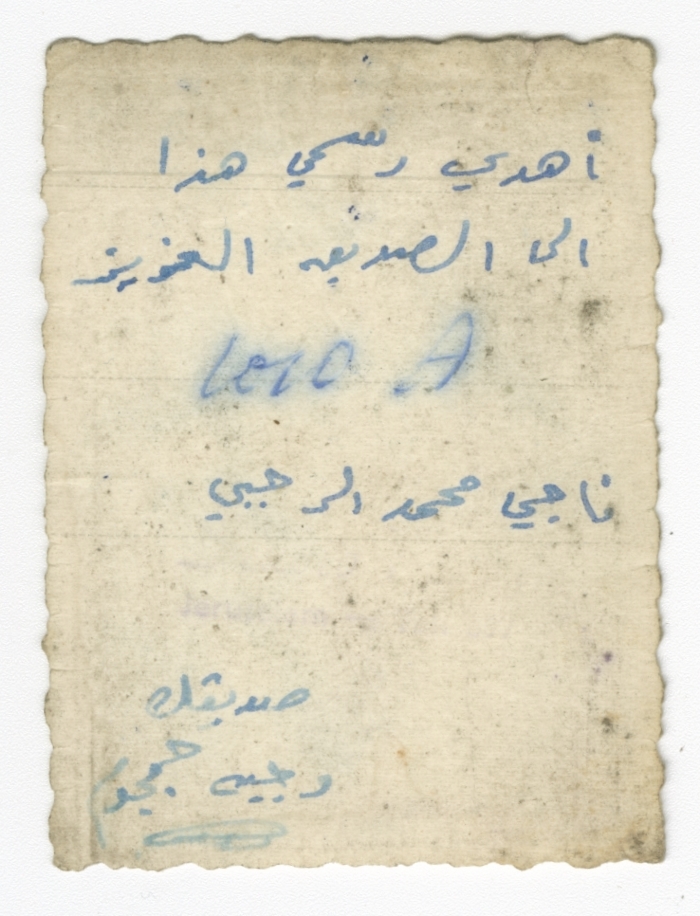 أهدي رسمي هذا
الى الصديق العزيز
ناجي محمد الرجبي
صديقك
وجيه